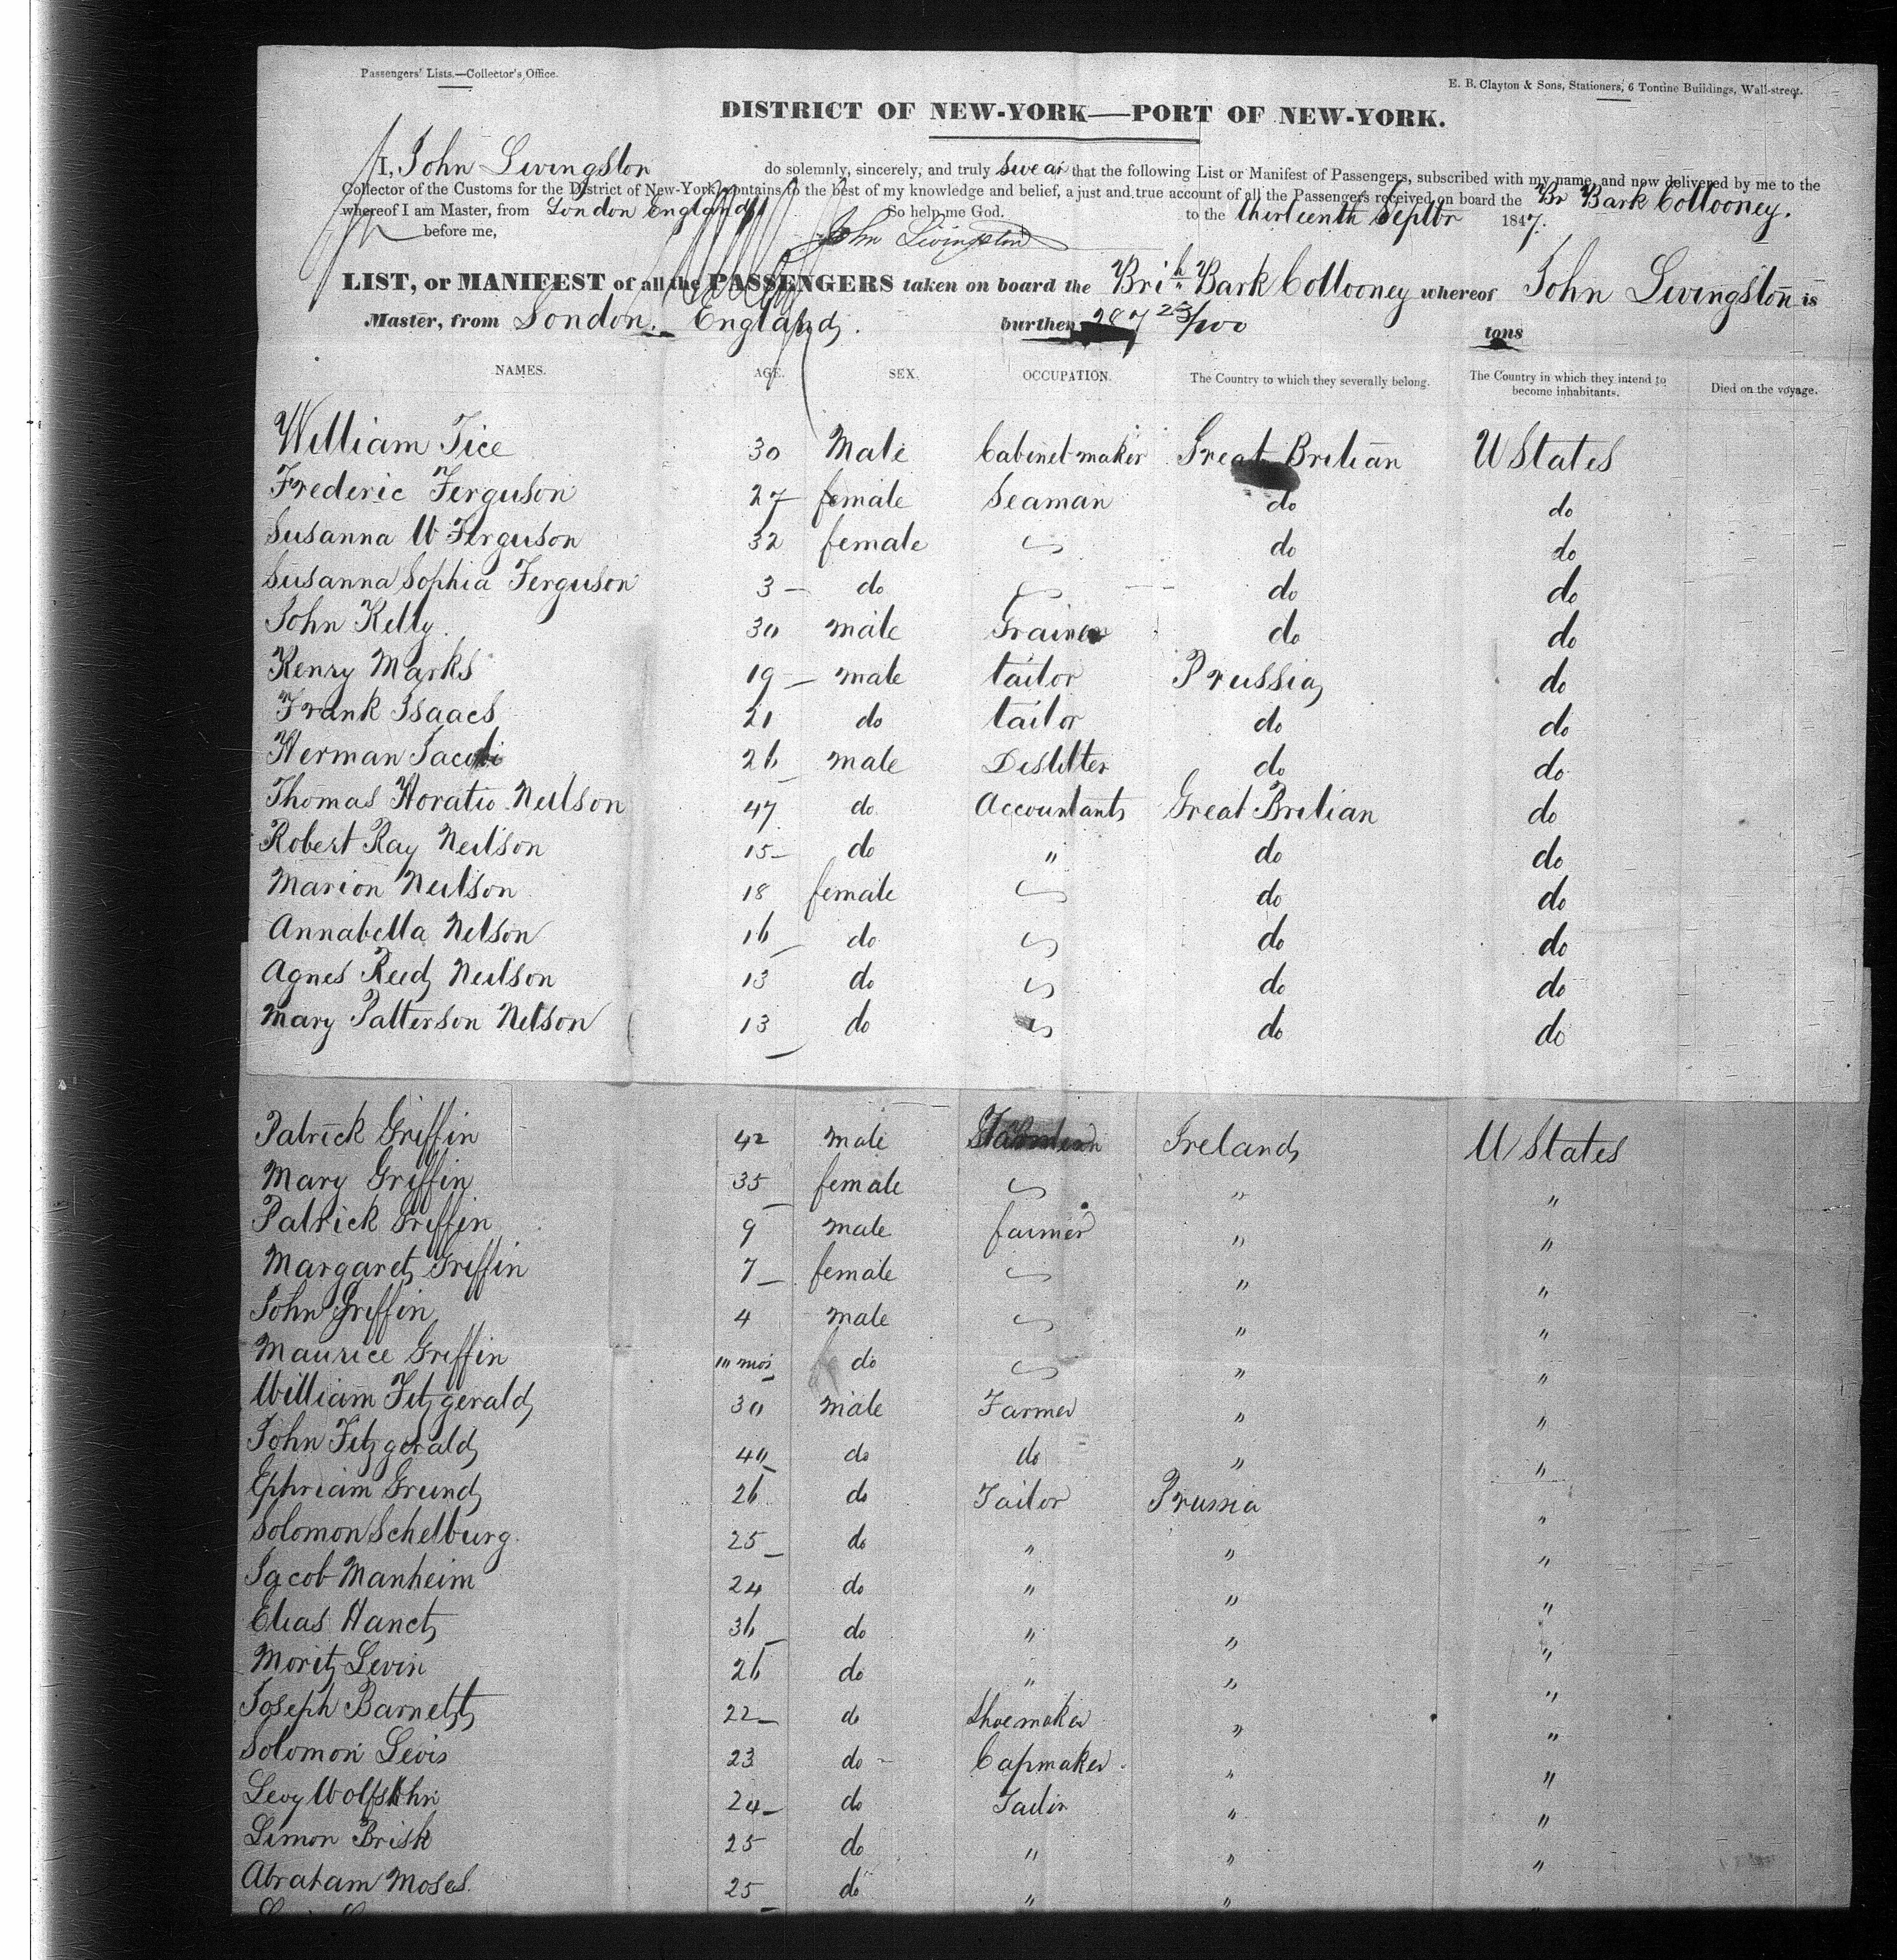 Passengers' Lists.—Collector's Office.
E. B. Clayton & Sons, Stationers, 6 Tontine Buildings, Wall-street.
DISTRICT OF NEW-YORK—PORT OF NEW-YORK.
I, John Livingston do solemnly, sincerely, and truly swear that the following List or Manifest of Passengers, subscribed with my name, and now delivered by me to the
Collector of the Customs for the District of New-York, contains to the best of my knowledge and belief, a just and true account of all the Passengers received on board the Br Bark Collooney.
whereof I am Master, from London England to the thirteenth Septbr 1847.
So help me God.
before me, John Livingston
LIST, or MANIFEST of all the PASSENGERS taken on board the Brih Bark Collooney whereof John Livingston is
Master, from London. England. burthen 287 23/100 tons
NAMES. AGE. SEX. OCCUPATION. The Country to which they severally belong. The Country in which they intend to become inhabitants. Died on the voyage.
William Tice 30 Male Cabinet-maker Great Britian U States
Frederic Ferguson 27 female Seaman do do
Susanna W Ferguson 32 female do do
Susanna Sophia Ferguson 3 do do do
John Kelly 30 male Grainer do do
Henry Marks 19 male tailor Prussia do
Frank Isaacs 21 do tailor do do
Herman Jacobi 26 male Distiller do do
Thomas Horatio Neilson 47 do Accountant Great Britian do
Robert Ray Neilson 15 do " do do
Marion Neilson 18 female do do
Annabella Nelson 16 do do do
Agnes Reed Neilson 13 do do do
Mary Patterson Nelson 13 do do do
Patrick Griffin 42 male Ireland U States
Mary Griffin 35 female " "
Patrick Griffin 9 male farmer " "
Margaret Griffin 7 female " "
John Griffin 4 male " "
Maurice Griffin 10 mos do " "
William Fitzgerald 30 male Farmer " "
John Fitzgerald 40 do do " "
Ephriam Grund 26 do Tailor Prussia "
Solomon Schelburg 25 do " " "
Jacob Manheim 24 do " " "
Elias Hanet 36 do " " "
Moritz Levin 26 do " " "
Joseph Barnett 22 do Shoemaker " "
Solomon Levis 23 do Capmaker " "
Levy Wolfskhn 24 do Tailor " "
Simon Brisk 25 do " " "
Abraham Moses 25 do " "